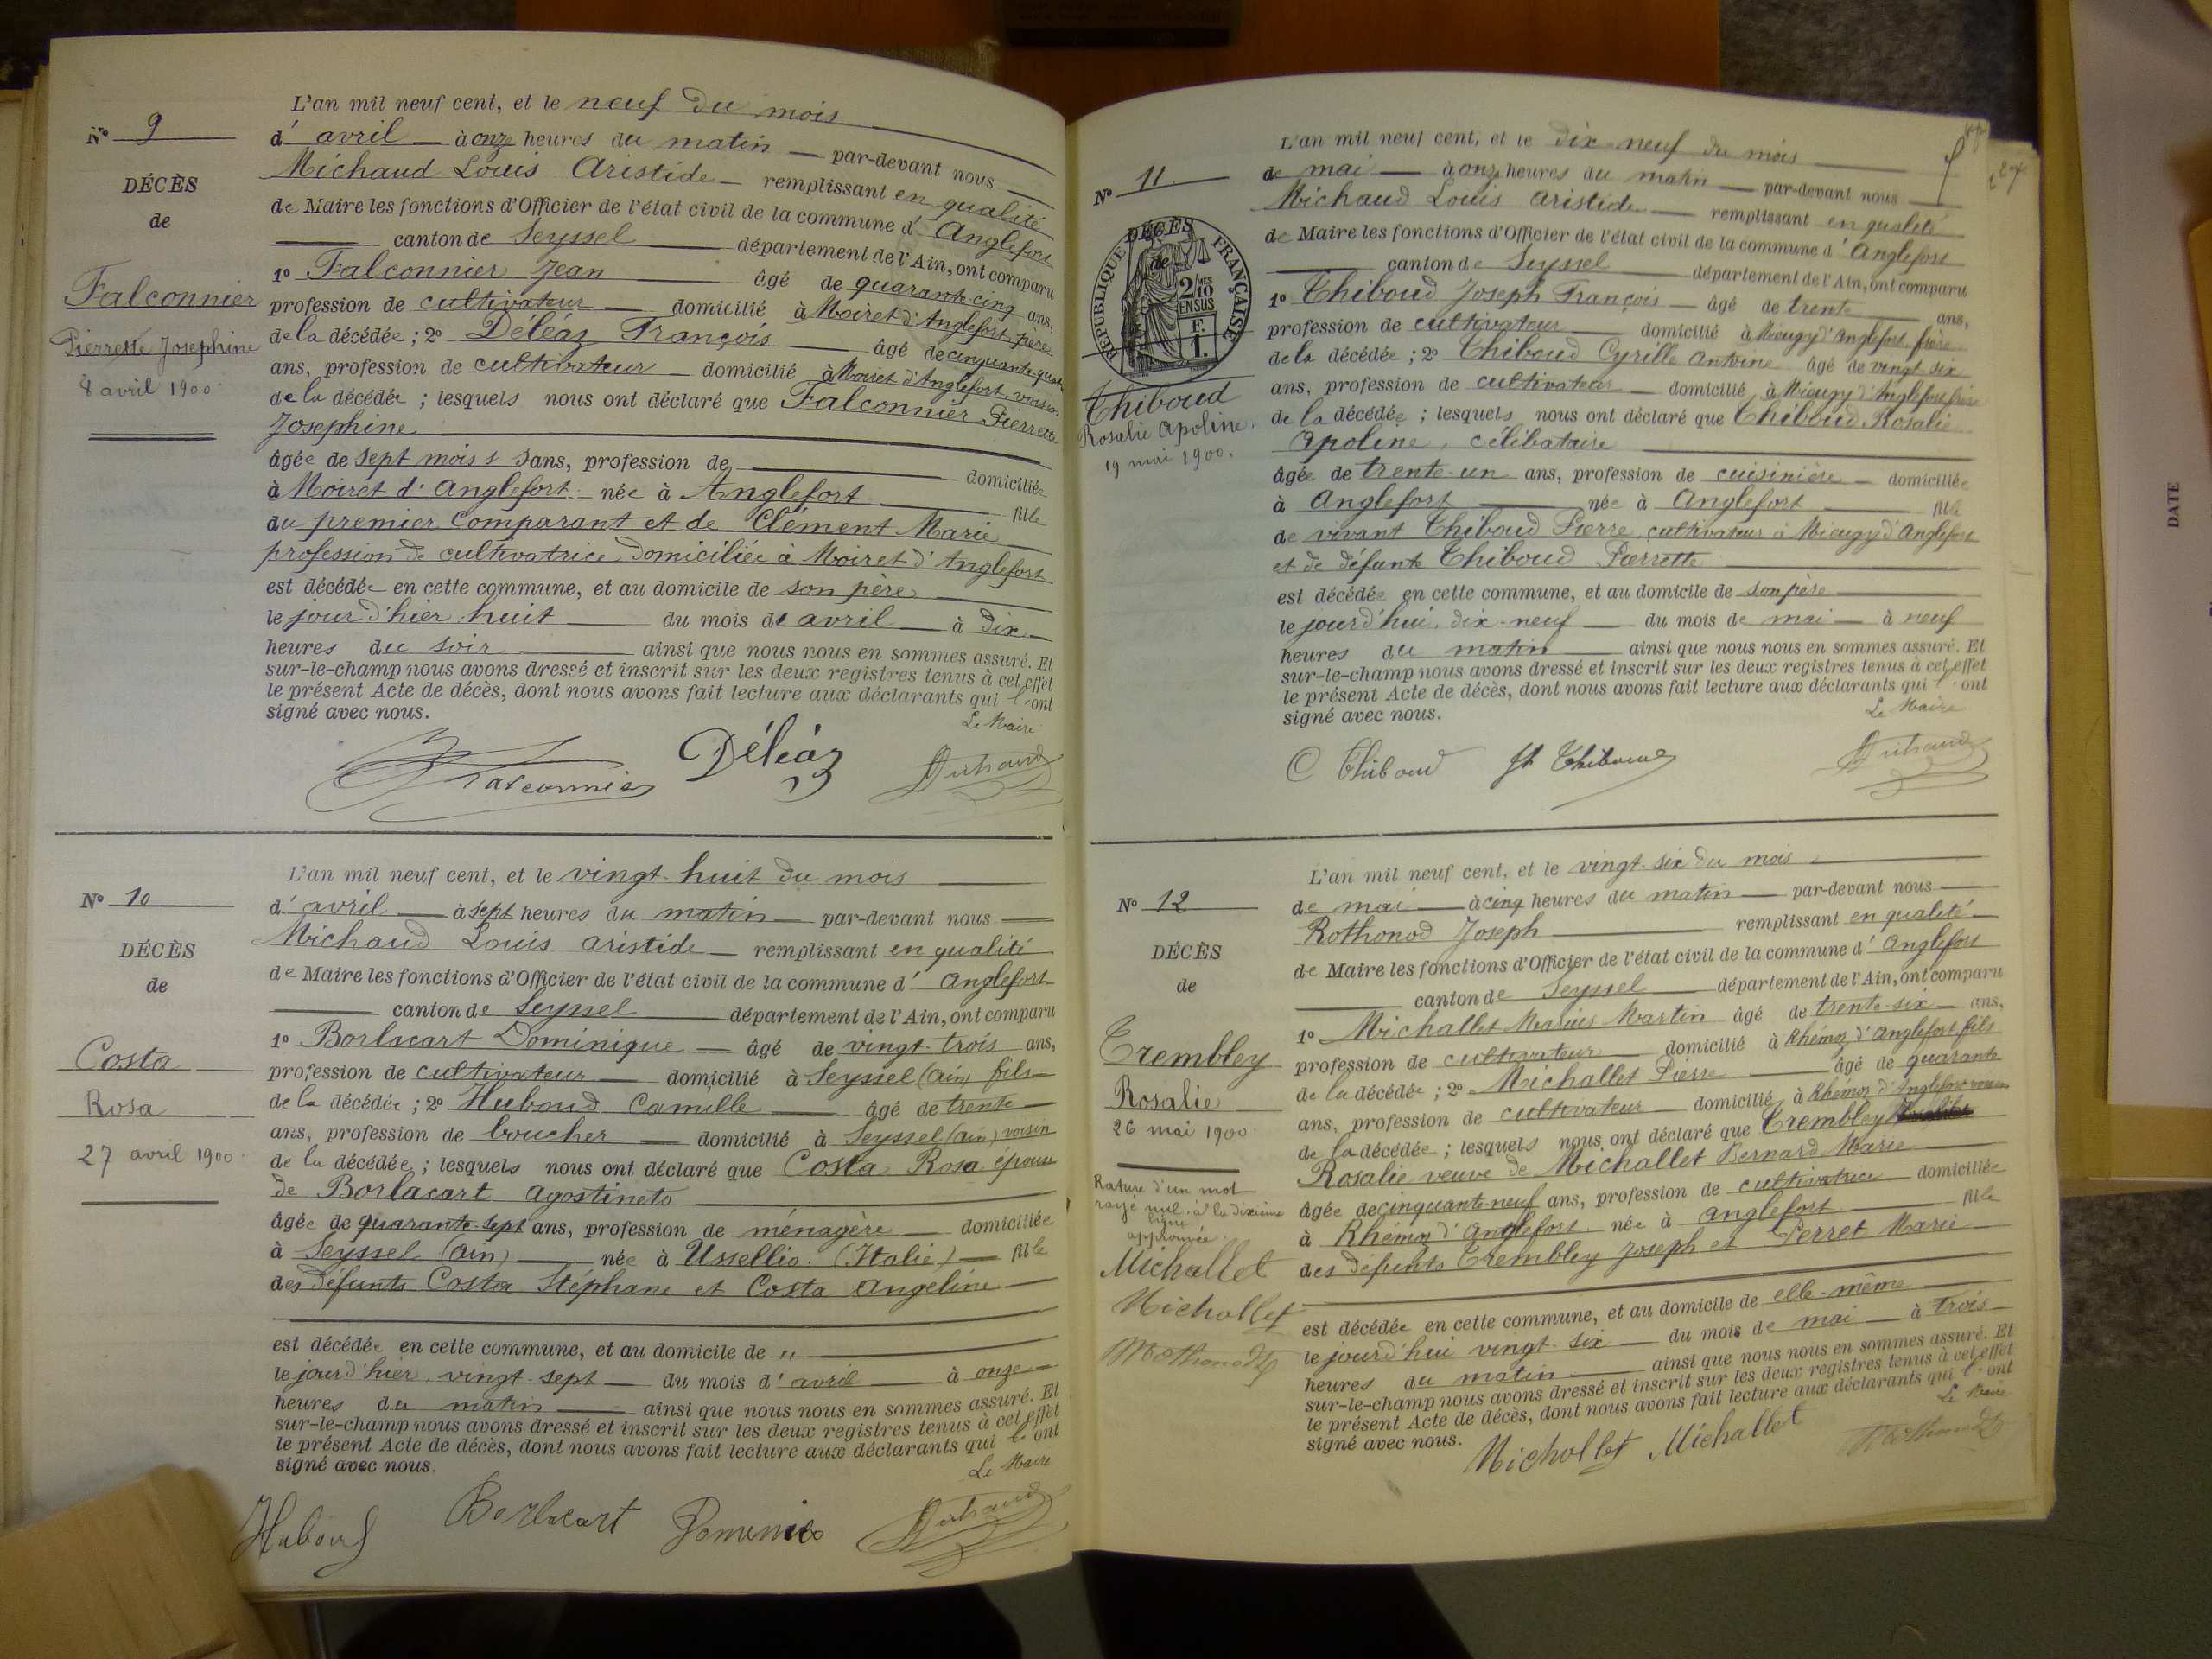 N° 9
DÉCÈS
de
Falconnier
Pierrette Josephine
8 avril 1900
L'an mil neuf cent, et le neuf du mois
d'avril à onze heures du matin par-devant nous
Michaud Louis Aristide remplissant en qualité
de Maire les fonctions d'Officier de l'état civil de la commune d'Anglefort
canton de Seyssel département de l'Ain, ont comparu
1° Falconnier Jean âgé de quarante cinq ans,
profession de cultivateur domicilié à Moiret d'Anglefort, père
de la décédée ; 2° Déléaz François âgé de cinquante quatre
ans, profession de cultivateur domicilié à Moiret d'Anglefort, voisin
de la décédée ; lesquels nous ont déclaré que Falconnier Pierrette
Josephine
âgée de sept mois ans, profession de domiciliée
à Moiret d'Anglefort née à Anglefort fille
du premier comparant et de Clément Marie
profession de cultivatrice domiciliée à Moiret d'Anglefort
est décédée en cette commune, et au domicile de son père
le jour d'hier huit du mois de avril à dix
heures du soir ainsi que nous nous en sommes assuré. Et
sur-le-champ nous avons dressé et inscrit sur les deux registres tenus à cet effet
le présent Acte de décès, dont nous avons fait lecture aux déclarants qui l'ont
signé avec nous.
Le Maire
Falconnier Déléaz Michaud
N° 10
DÉCÈS
de
Costa
Rosa
27 avril 1900.
L'an mil neuf cent, et le vingt-huit du mois
d'avril à sept heures du matin par-devant nous
Michaud Louis aristide remplissant en qualité
de Maire les fonctions d'Officier de l'état civil de la commune d'Anglefort
canton de Seyssel département de l'Ain, ont comparu
1° Borlacart Dominique âgé de vingt-trois ans,
profession de cultivateur domicilié à Seyssel (Ain) fils
de la décédée ; 2° Huboud Camille âgé de trente
ans, profession de boucher domicilié à Seyssel (Ain) voisin
de la décédée ; lesquels nous ont déclaré que Costa Rosa épouse
de Borlacart agostineto
âgée de quarante-sept ans, profession de ménagère domiciliée
à Seyssel (Ain) née à Ussellio. (Italie) fille
des défunts Costa Stéphane et Costa Angeline
est décédée en cette commune, et au domicile de "
le jour d'hier vingt-sept du mois d'avril à onze
heures du matin ainsi que nous nous en sommes assuré. Et
sur-le-champ nous avons dressé et inscrit sur les deux registres tenus à cet effet
le présent Acte de décès, dont nous avons fait lecture aux déclarants qui l'ont
signé avec nous.
Le Maire
Huboud Borlacart Domenico Michaud
N° 11
DÉCÈS
de
RÉPUBLIQUE FRANÇAISE
2/10
EN SUS
F.
1.
Thiboud
Rosalie Apoline.
19 mai 1900.
L'an mil neuf cent, et le dix-neuf du mois
de mai à onze heures du matin par-devant nous
Michaud Louis aristide remplissant en qualité
de Maire les fonctions d'Officier de l'état civil de la commune d'Anglefort
canton de Seyssel département de l'Ain, ont comparu
1° Thiboud Joseph François âgé de trente ans,
profession de cultivateur domicilié à Mieugy d'Anglefort, frère
de la décédée ; 2° Thiboud Cyrille Antoine âgé de vingt six
ans, profession de cultivateur domicilié à Mieugy d'Anglefort, frère
de la décédée ; lesquels nous ont déclaré que Thiboud Rosalie
Apoline, célibataire
âgée de trente-un ans, profession de cuisinière domiciliée
à Anglefort née à Anglefort fille
de vivant Thiboud Pierre, cultivateur à Mieugy d'Anglefort
et de défunte Thiboud Pierrette
est décédée en cette commune, et au domicile de son père
le jourd'hui dix-neuf du mois de mai à neuf
heures du matin ainsi que nous nous en sommes assuré. Et
sur-le-champ nous avons dressé et inscrit sur les deux registres tenus à cet effet
le présent Acte de décès, dont nous avons fait lecture aux déclarants qui l'ont
signé avec nous.
Le Maire
C Thiboud Jh Thiboud Michaud
N° 12
DÉCÈS
de
Trembley
Rosalie
26 mai 1900.
Rature d'un mot
rayé nul à la dixième
ligne
approuvée.
Michallet
Michollet
Rothonod
L'an mil neuf cent, et le vingt-six du mois
de mai à cinq heures du matin par-devant nous
Rothonod Joseph remplissant en qualité
de Maire les fonctions d'Officier de l'état civil de la commune d'Anglefort
canton de Seyssel département de l'Ain, ont comparu
1° Michallet Marius Martin âgé de trente-six ans,
profession de cultivateur domicilié à Rhémoz d'Anglefort, fils
de la décédée ; 2° Michallet Pierre âgé de quarante
ans, profession de cultivateur domicilié à Rhémoz d'Anglefort voisin
de la décédée ; lesquels nous ont déclaré que Trembley
Rosalie veuve de Michallet Bernard Marie
âgée de cinquante-neuf ans, profession de cultivatrice domiciliée
à Rhémoz d'Anglefort née à Anglefort fille
des défunts Trembley Joseph et Perret Marie
est décédée en cette commune, et au domicile de elle-même
le jourd'hui vingt-six du mois de mai à trois
heures du matin ainsi que nous nous en sommes assuré. Et
sur-le-champ nous avons dressé et inscrit sur les deux registres tenus à cet effet
le présent Acte de décès, dont nous avons fait lecture aux déclarants qui l'ont
signé avec nous.
Le Maire
Michollet Michallet Rothonod
DATE